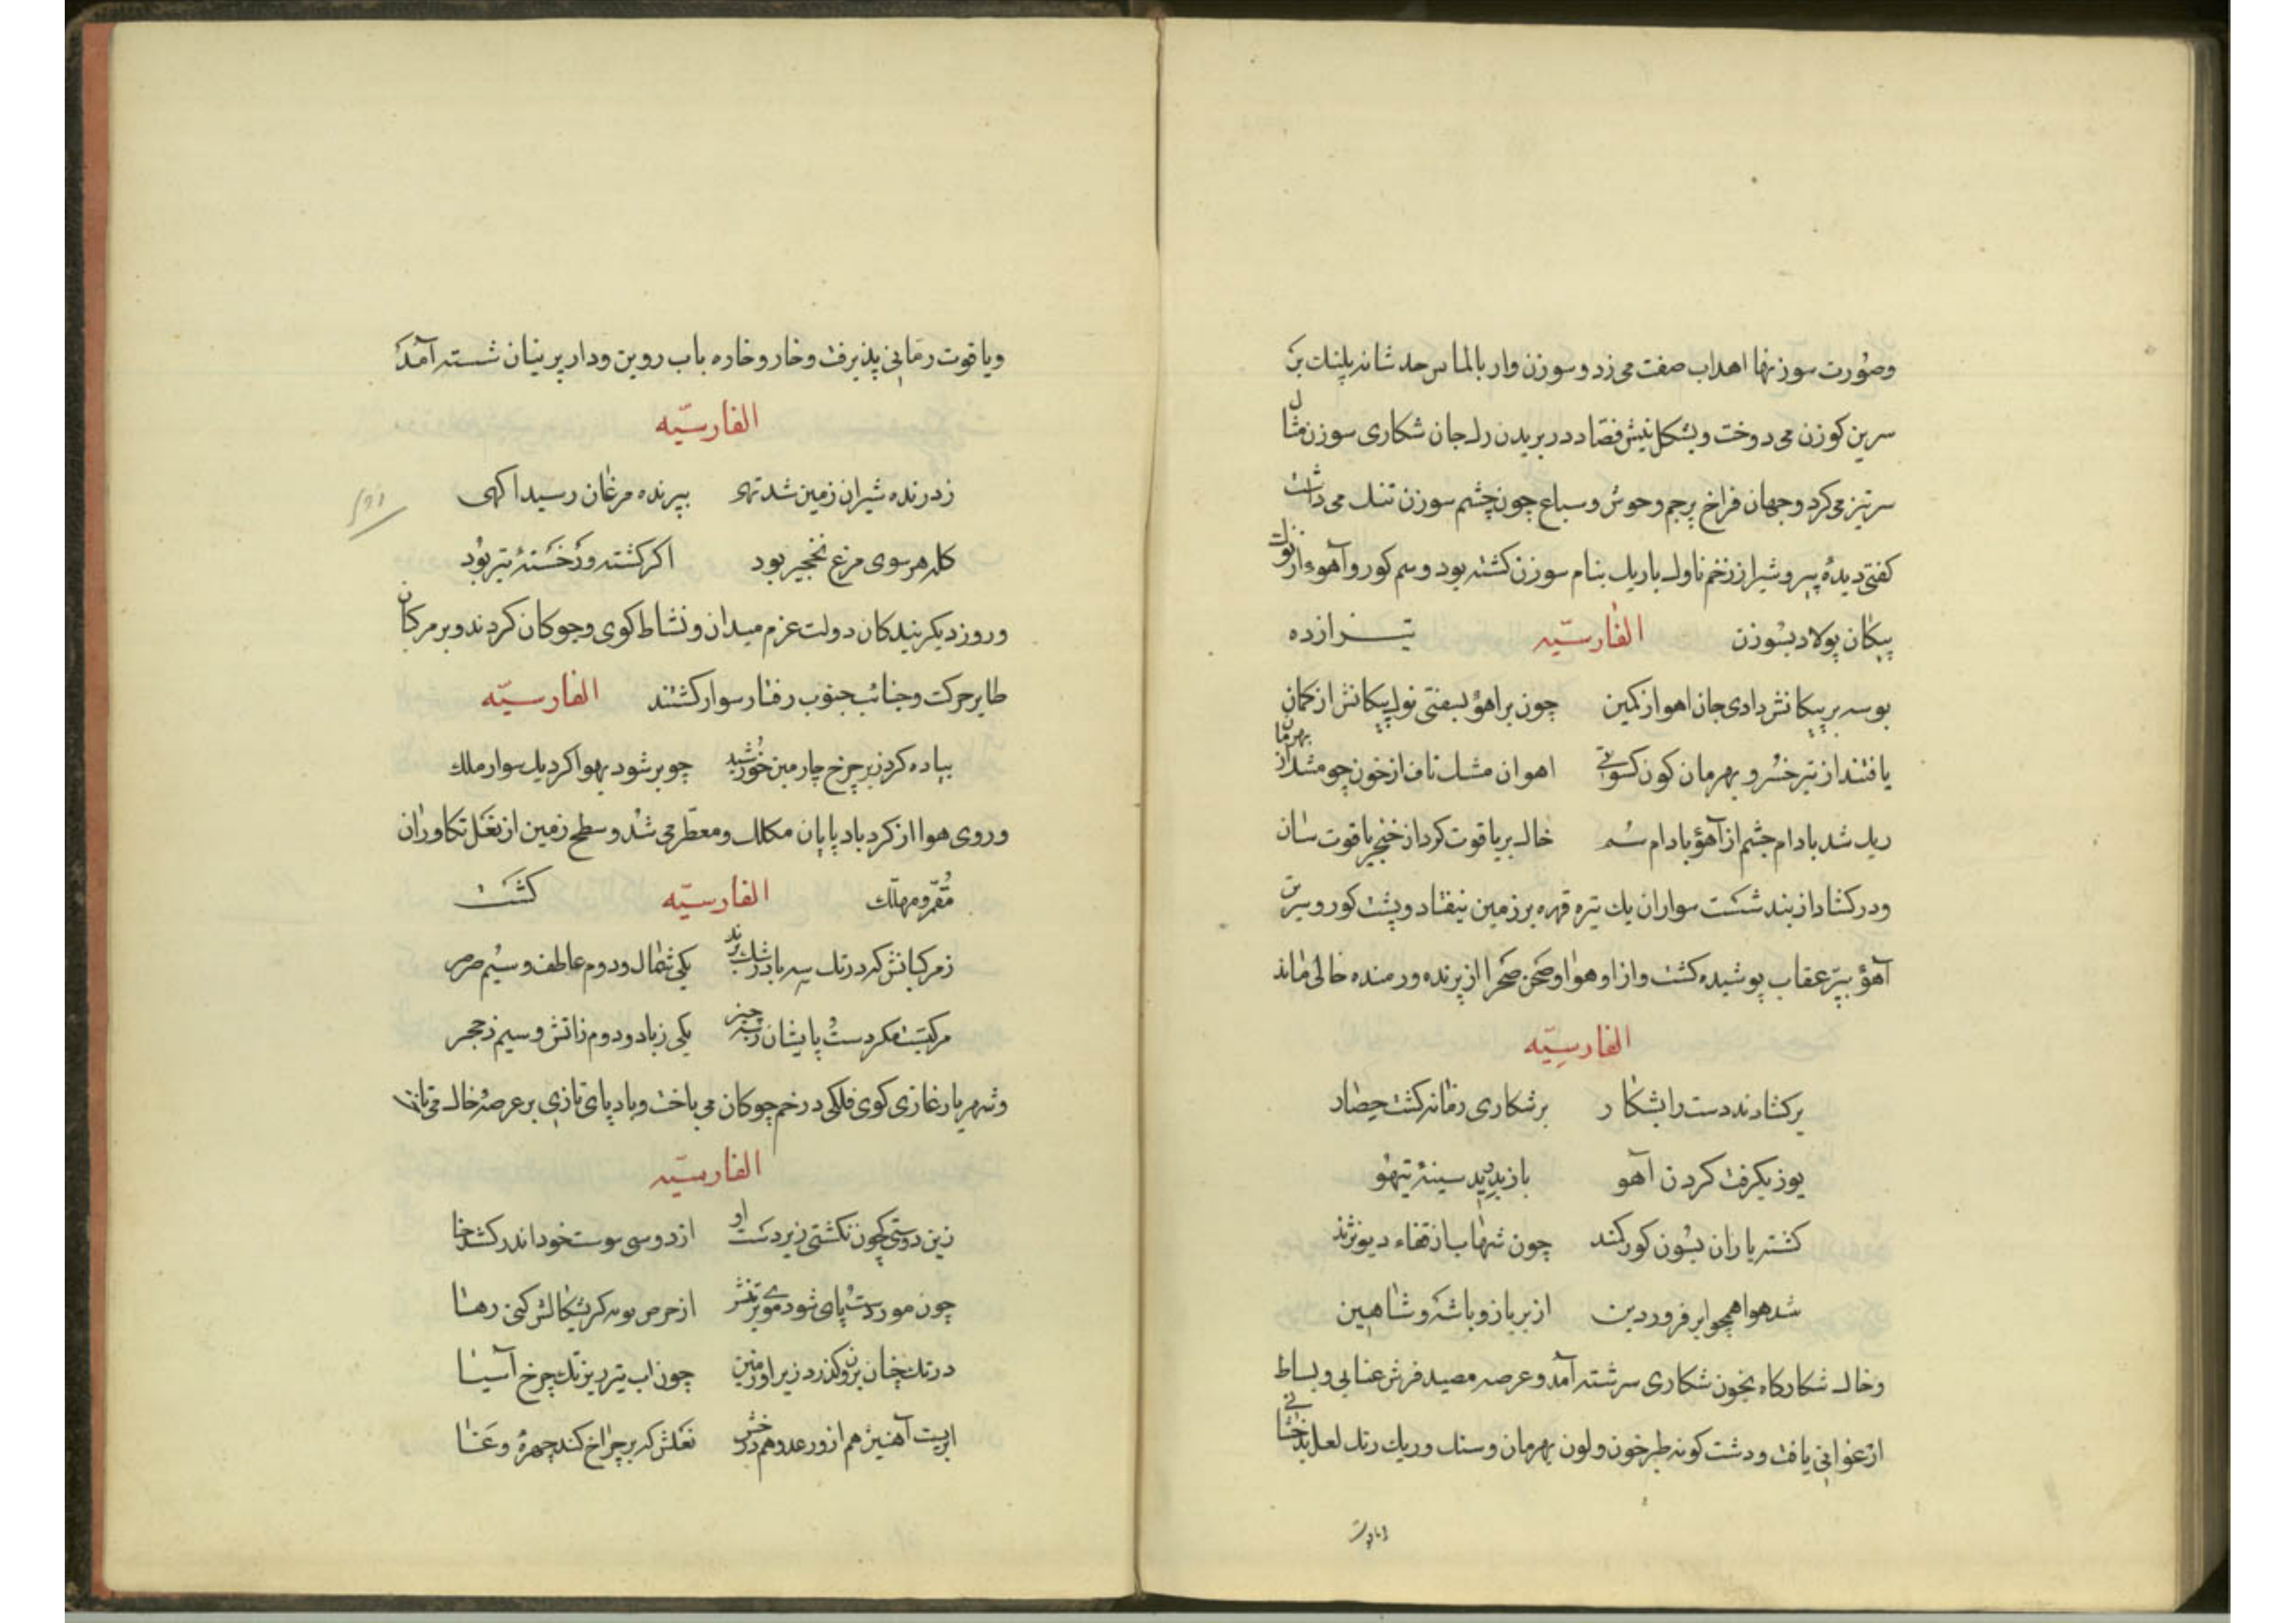 وصورت سوزنها اهداب صفت می زد و سوزن وار بالماس حد شانه پلنک بر
سرین کوزن می دوخت و بشکل نیش فصاد در بریدن رک جان شکاری سوزن مثال
سرتیز می کرد و جهان فراخ بر جم وحوش و سباع چون چشم سوزن تنک می داشت
کفتی دیده ببر و شیر از زخم ناوک باریک بنام سوزن کشته بود و سم کور و آهو از نوک
پیکان پولاد بسوزن
الفارسیّه
تیز ازده
بوسه بر پیکانش دادی جان اهو از کمین چون بر اهو بسفتی نوک پیکانش از کمان
یافتند از تیر خسرو بهرمان کون کسوتی اهوان مشک ناف از خون چو مشک از بهرمان
ریک شد بادام چشم از آهو بادام سم خاک بر یاقوت کرد از خنجر یاقوت سان
ودر کشاد از بند شست سواران یک تیره قهره بر زمین نیفتاد و پشت کور و سرین
آهو ببر عقاب پوشیده کشت و از او هوا و صحن صحرا از پرنده و رمنده خالی ماند
الفارسیّه
برکشادند دست را بشکار بر شکاری زمانه کشت حصار
یوز بکرفت کردن آهو باز بدرید سینه تیهو
کشته یاران بسون کور کند چون شهاب از قفاء دیو نژند
شد هوا همچو ابر فروردین از پر باز و باشه و شاهین
وخاک شکارکاه بخون شکاری سرشته آمد و عرصه مصید فرش عنابی و بساط
ارغوانی یافت و دشت کونه طبرخون و لون بهرمان و سنک و ریک رنک لعل بدخشانی
ویاقوت
ویاقوت رمانی پذیرفت و خار و خاره باب روین و دار پرنیان شسته آمد
الفارسیّه
ز درنده شیران زمین شد تهی بپرنده مرغان رسید اکهی
کله هر سوی مرغ نخجیر بود اکر کشته ور خسته تیر بود
وروز دیکر بندکان دولت عزم میدان و نشاط کوی و جوکان کردند و بر مرکبان
طایر حرکت و جنائب جنوب رفتار سوار کشتند الفارسیّه
پیاده کردز بر چرخ چارمین خورشید چو بر شود بهوا کرد یک سوار ملک
وروی هوا از کرد باد پایان مکلل و معطر می شد و سطح زمین از نعل تکاوران
مقمر و مهلّک
الفارسیّه
کشت
ز مرکبانش که در تک سه باد رشک برند یکی شمال و دوم عاطف و سیم صرصر
مرکبست مکر دست پایشان ز سه چیز یکی ز باد و دوم ز اتش و سیم ز حجر
وشهریار غازی کوی فلکی در خم چوکان می باخت و باد پای تازی بر عرصه خاک می تاخت
الفارسیّه
زین دوستی که چون نکشتی زیر دست او از دوسی سوست خود اندر کشد
چون مور دست پای شود موی بر تنش از حرص بویه کر بشکالش کنی رها
در تک چنان برو کذرد زیر او زمین چون اب تیر در بن تک چرخ آسیا
ابریست آهنین هم ازو رعد و هم درخش نعلش که بر چراخ کند چهره وغا